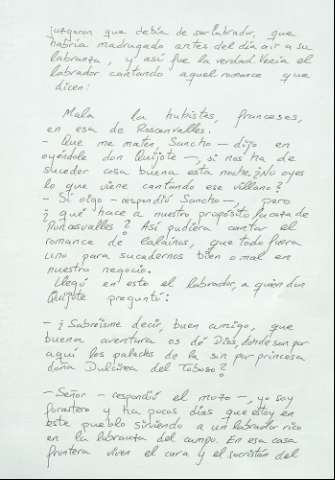 juzgaron que debía de ser labrador, que
habría madrugado antes del día a ir a su
labranza, y así fue la verdad. Venía el
labrador cantando aquel romance que
dicen:
Mala la hubistes, franceses,
en esa de Roncesvalles.
- Que me maten, Sancho - dijo en
oyéndole don Quijote -, si nos ha de
suceder cosa buena esta noche. ¿No oyes
lo que viene cantando ese villano?
- Sí oigo - respondió Sancho -, pero
¿qué hace a nuestro propósito la caza de
Roncesvalles? Así pudiera cantar el
romance de Calaínos, que todo fuera
uno para sucedernos bien o mal en
nuestro negocio.
Llegó en esto el labrador, a quien don
Quijote preguntó:
- ¿Sabréisme decir, buen amigo, que
buena aventura os dé Dios, dónde son por
aquí los palacios de la sin par princesa
doña Dulcinea del Toboso?
- Señor - respondió el mozo -, yo soy
forastero y ha pocos días que estoy en
este pueblo sirviendo a un labrador rico
en la labranza del campo. En esa casa
frontera viven el cura y el sacristán del